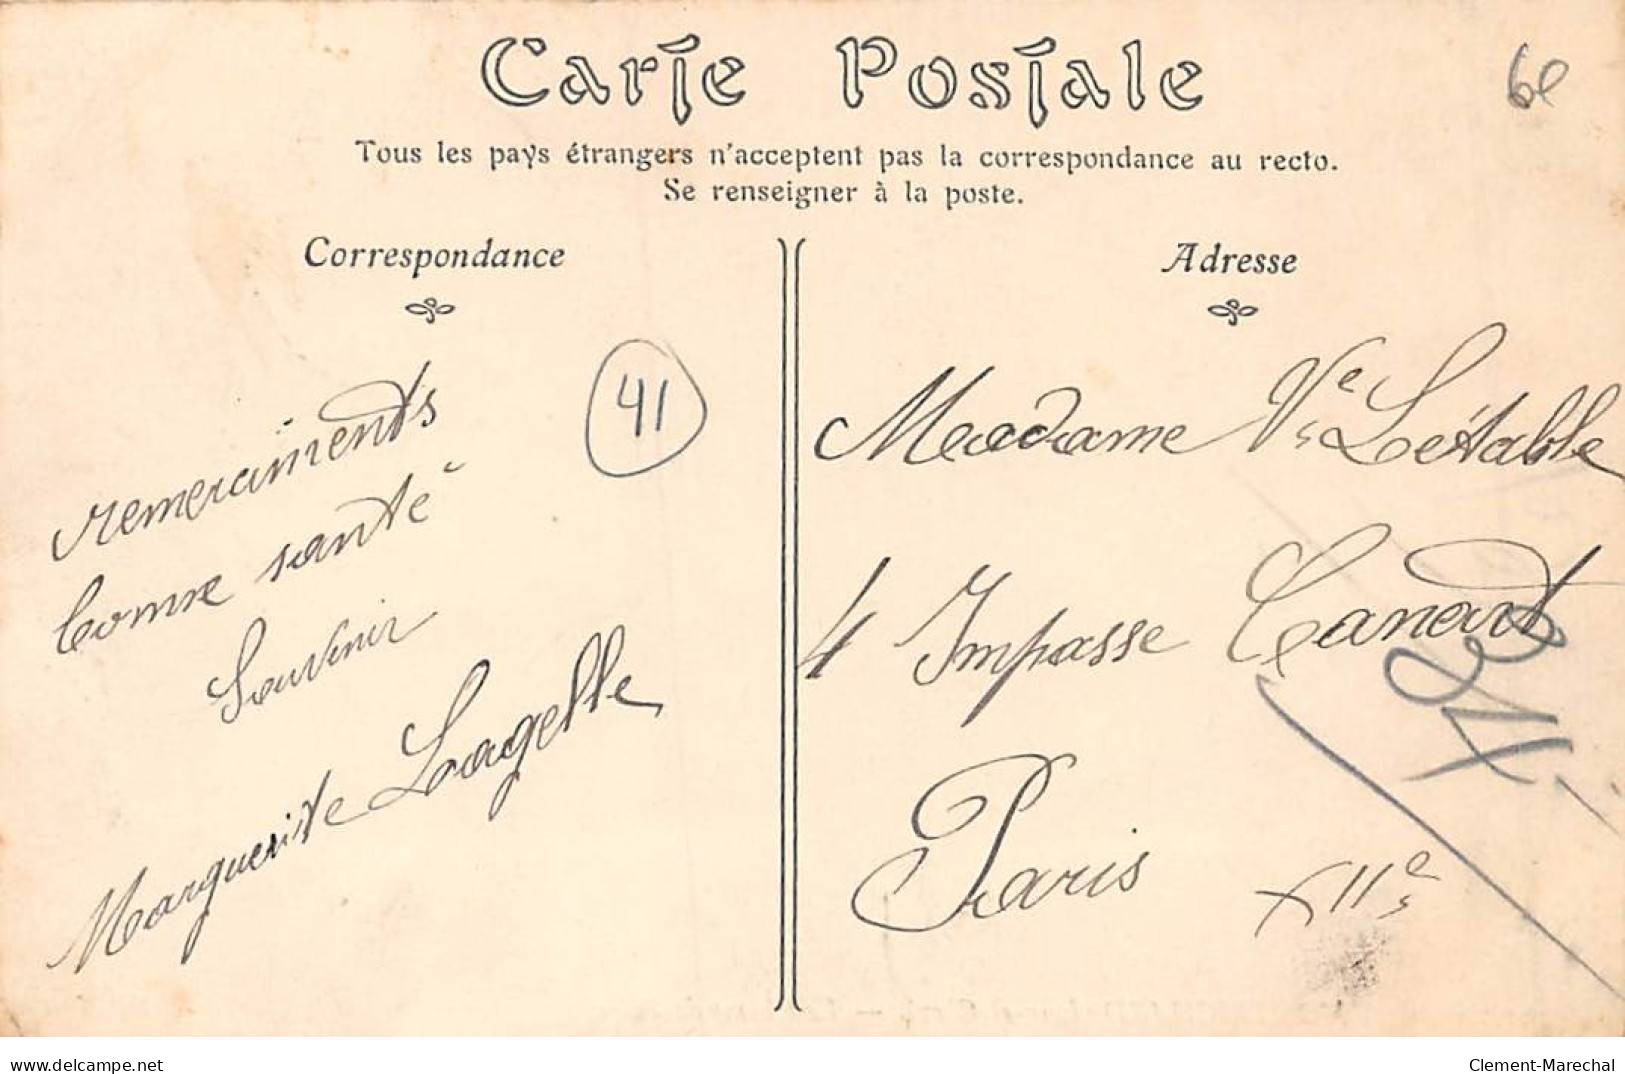 Carte Postale
6e
Tous les pays étrangers n'acceptent pas la correspondance au recto.
Se renseigner à la poste.
Correspondance
41
remerciments
bonne santé
Souvenir
Marguerite Lagelle
Adresse
Madame Ve Létable
4 Impasse Canart
Paris XIIe
delcampe.net
Clement-Marechal